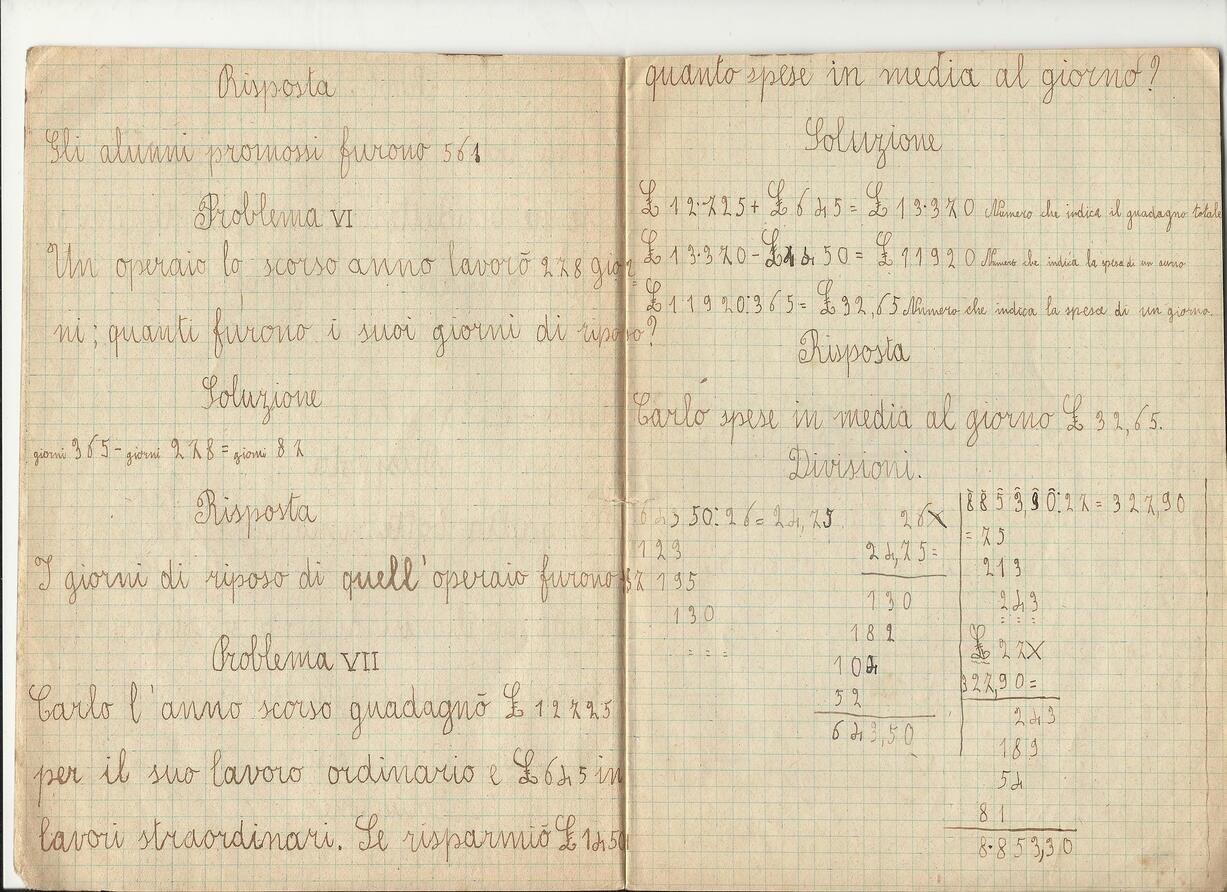 Risposta
Gli alunni promossi furono 561
Problema VI
Un operaio lo scorso anno lavorò 278 gior=
ni; quanti furono i suoi giorni di riposo?
Soluzione
giorni 365 - giorni 278 = giorni 87
Risposta
I giorni di riposo di quell'operaio furono 87
Problema VII
Carlo l'anno scorso guadagnò £ 12725
per il suo lavoro ordinario e £ 645 in
lavori straordinari. Se risparmiò £ 1450
quanto spese in media al giorno?
Soluzione
£ 12.725 + £ 645 = £ 13.370 Numero che indica il guadagno totale
£ 13.370 - £ 1450 = £ 11920 Numero che indica la spesa di un anno
£ 11920:365 = £ 32,65 Numero che indica la spesa di un giorno.
Risposta
Carlo spese in media al giorno £ 32,65.
Divisioni.
64350:26 = 24,75
123
195
130
= = =
26 X
24,75 =
130
182
104
52
643,50
8853,30:27 = 327,90
= 75
213
243
= = =
27 X
327,90 =
243
189
54
81
8.853,30